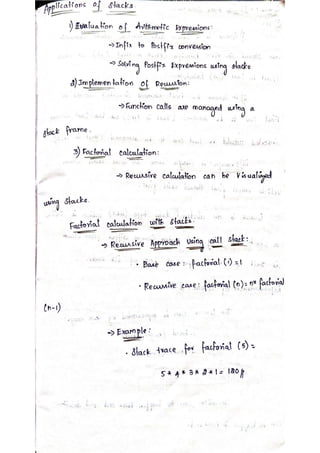 Applications of Stacks.
1) Evaluation of Arithmetic Expressions:
→ Infix to Postfix conversion
→ Solving Postfix Expressions using stacks
2) Implementation of Recursion:
→ Function calls are managed using a
stack frame.
3) Factorial calculation:
→ Recursive calculation can be visualized
using stacks.
Factorial calculation with stacks.
→ Recursive Approach using call stack:
• Base case :- factorial (1) = 1
• Recursive case : factorial (n) = n* factorial
(n-1)
→ Example:
• Stack trace for factorial (5) =
5 * 4 * 3 * 2 * 1 = 120